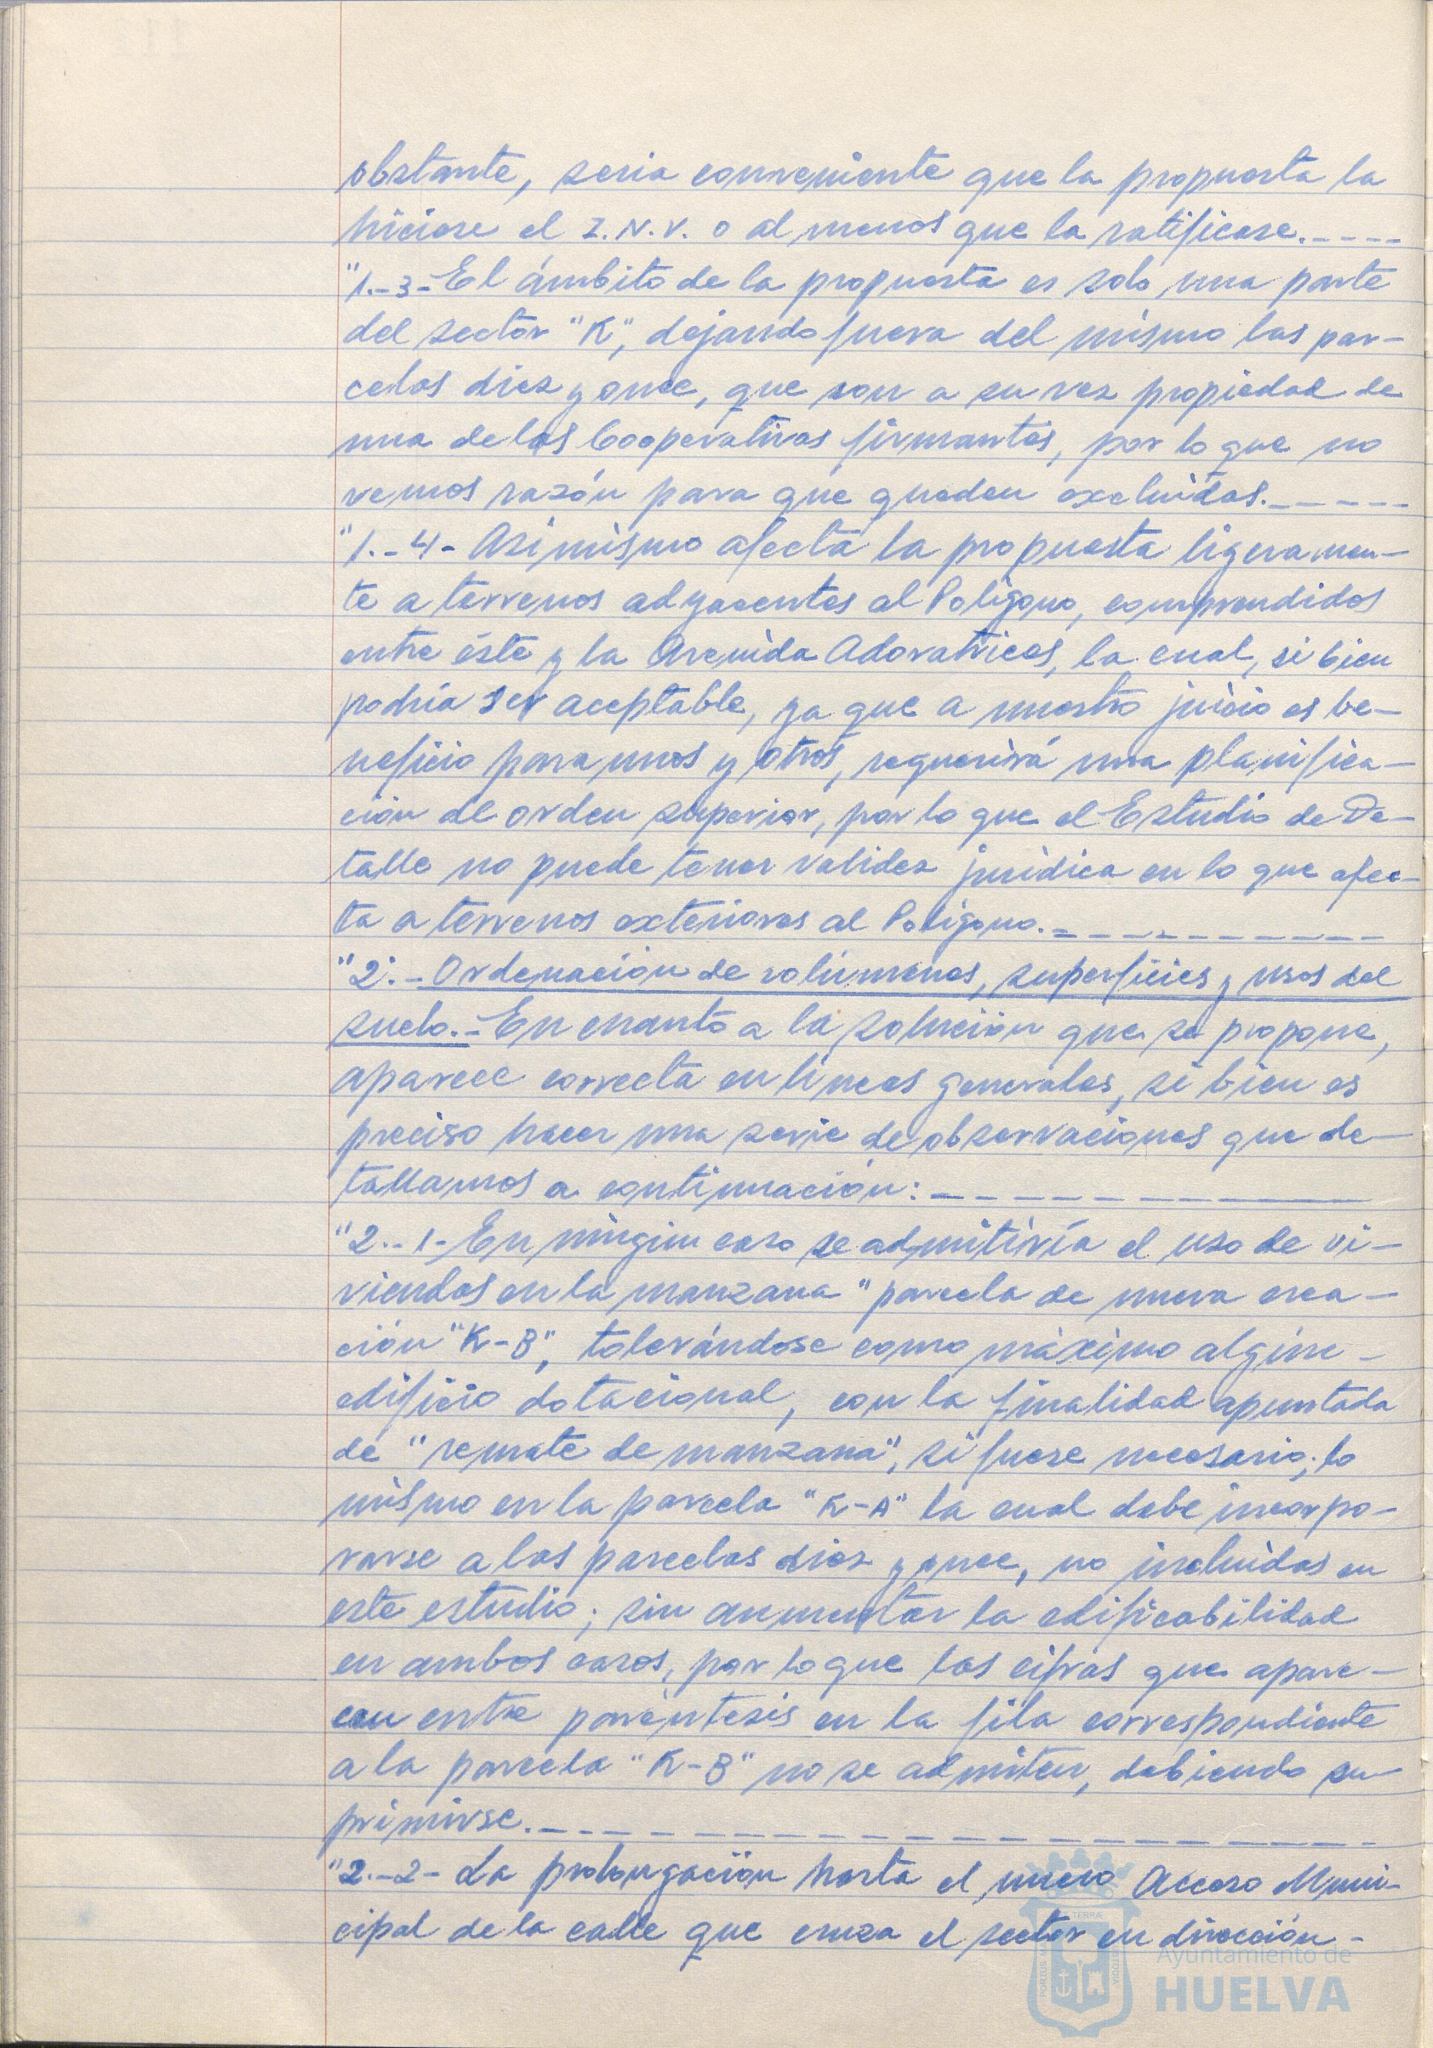 obstante, seria conveniente que la propuesta la
hiciese el I.N.V. o al menos que la ratificase.----
"1.-3-El ámbito de la propuesta es solo una parte
del sector "K", dejando fuera del mismo las par-
celas diez y once, que son a su vez propiedad de
una de las Cooperativas firmantes, por lo que no
vemos razón para que queden excluidas.-----
"1.-4- Asimismo afecta la propuesta ligeramen-
te a terrenos adyacentes al Polígono, comprendidos
entre éste y la Avenida Adoratrices, la cual, si bien
podria ser aceptable, ya que a nuestro juicio es be-
neficio para unos y otros, requerirá una planifica-
ción de orden superior, por lo que el Estudio de De-
talle no puede tener validez jurídica en lo que afec-
ta a terrenos exteriores al Polígono.----------
"2.-Ordenación de volúmenes, superficies y usos del
suelo.-En cuanto a la solución que se propone,
aparece correcta en lineas generales, si bien es
preciso hacer una serie de observaciones que de-
tallamos a continuación:----------
"2.-1-En ningún caso se admitiría el uso de vi-
viendas en la manzana "parcela de nueva crea-
ción "K-B", tolerándose como máximo algún-
edificio dotacional, con la finalidad apuntada
de "remate de manzana", si fuese necesario; lo
mismo en la parcela "K-A" la cual debe incorpo-
rarse a las parcelas diez y once, no incluidas en
este estudio; sin aumentar la edificabilidad
en ambos casos, por lo que las cifras que apare-
cen entre paréntesis en la fila correspondiente
a la parcela "K-B" no se admiten, debiendo su-
primirse.------------------
"2.-2- La prolongación hasta el nuevo Acceso Muni-
cipal de la calle que cruza el sector en dirección-
Ayuntamiento de
HUELVA